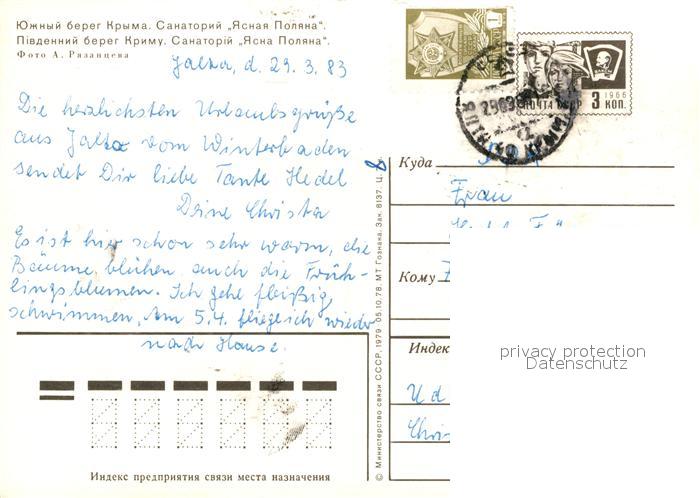 Южный берег Крыма. Санаторий „Ясная Поляна“.
Південний берег Криму. Санаторій „Ясна Поляна“.
Фото А. Рязанцева
Jalta, d. 29. 3. 83
Die herzlichsten Urlaubsgrüße
aus Jalta vom Winterbaden
sendet Dir liebe Tante Hedel
Deine Christa
Es ist hier schon sehr warm, die
Bäume blühen auch die Früh-
lingsblumen. Ich gehe fleißig
schwimmen, Am 5.4. fliege ich wieder
nach Hause.
Индекс предприятия связи места назначения
© Министерство связи СССР, 1979 05.10.78. МТ Гознака. Зак. 8137. Ц.
8
1
1966
ПОЧТА СССР 3 КОП.
Куда
Frau
Кому
Индекс
privacy protection
Datenschutz